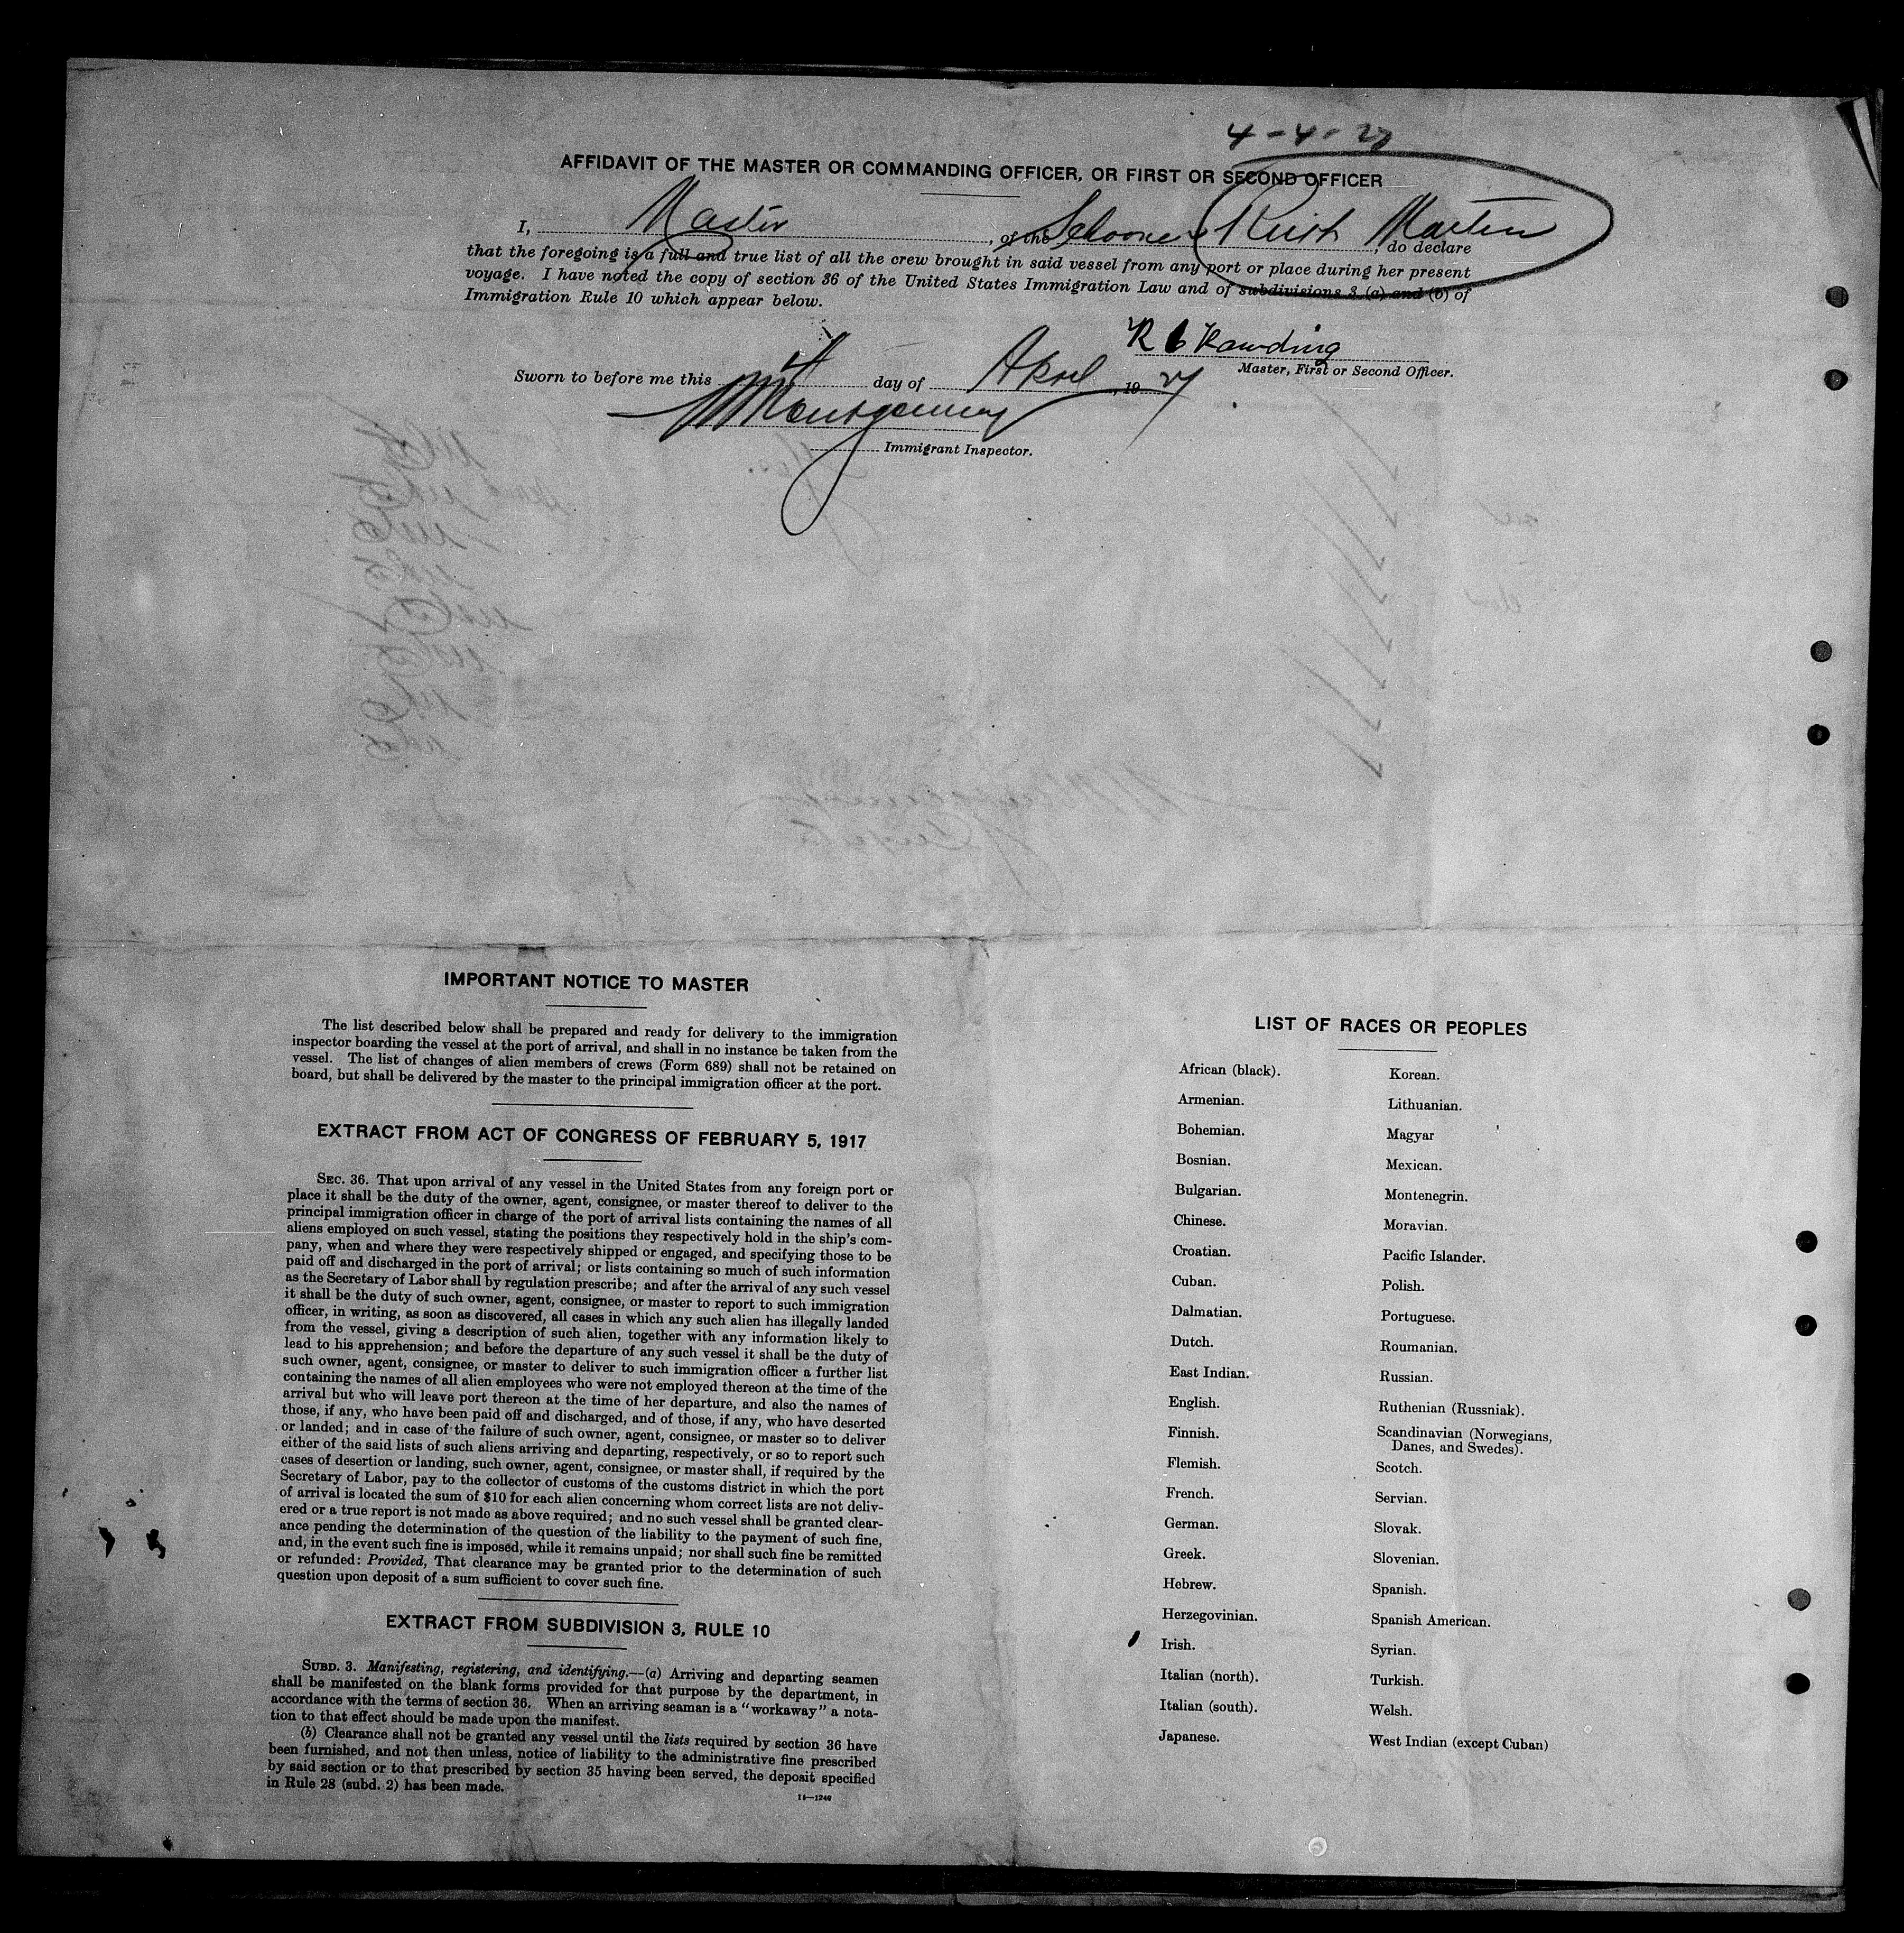 4-4-27
AFFIDAVIT OF THE MASTER OR COMMANDING OFFICER, OR FIRST OR SECOND OFFICER
I, Master, of the Schooner Martin, do declare
that the foregoing is a full and true list of all the crew brought in said vessel from any port or place during her present
voyage. I have noted the copy of section 36 of the United States Immigration Law and of subdivisions 3 (a) and (b) of
Immigration Rule 10 which appear below.
Master, First or Second Officer.
Sworn to before me this 4 day of April, 1927
Montgomery
Immigrant Inspector.
IMPORTANT NOTICE TO MASTER
The list described below shall be prepared and ready for delivery to the immigration
inspector boarding the vessel at the port of arrival, and shall in no instance be taken from the
vessel. The list of changes of alien members of crews (Form 689) shall not be retained on
board, but shall be delivered by the master to the principal immigration officer at the port.
EXTRACT FROM ACT OF CONGRESS OF FEBRUARY 5, 1917
SEC. 36. That upon arrival of any vessel in the United States from any foreign port or
place it shall be the duty of the owner, agent, consignee, or master thereof to deliver to the
principal immigration officer in charge of the port of arrival lists containing the names of all
aliens employed on such vessel, stating the positions they respectively hold in the ship's com-
pany, when and where they were respectively shipped or engaged, and specifying those to be
paid off and discharged in the port of arrival; or lists containing so much of such information
as the Secretary of Labor shall by regulation prescribe; and after the arrival of any such vessel
it shall be the duty of such owner, agent, consignee, or master to report to such immigration
officer, in writing, as soon as discovered, all cases in which any such alien has illegally landed
from the vessel, giving a description of such alien, together with any information likely to
lead to his apprehension; and before the departure of any such vessel it shall be the duty of
such owner, agent, consignee, or master to deliver to such immigration officer a further list
containing the names of all alien employees who were not employed thereon at the time of the
arrival but who will leave port thereon at the time of her departure, and also the names of
those, if any, who have been paid off and discharged, and of those, if any, who have deserted
or landed; and in case of the failure of such owner, agent, consignee, or master so to deliver
either of the said lists of such aliens arriving and departing, respectively, or so to report such
cases of desertion or landing, such owner, agent, consignee, or master shall, if required by the
Secretary of Labor, pay to the collector of customs of the customs district in which the port
of arrival is located the sum of $10 for each alien concerning whom correct lists are not deliv-
ered or a true report is not made as above required; and no such vessel shall be granted clear-
ance pending the determination of the question of the liability to the payment of such fine,
and, in the event such fine is imposed, while it remains unpaid; nor shall such fine be remitted
or refunded: Provided, That clearance may be granted prior to the determination of such
question upon deposit of a sum sufficient to cover such fine.
EXTRACT FROM SUBDIVISION 3, RULE 10
SUBD. 3. Manifesting, registering, and identifying.—(a) Arriving and departing seamen
shall be manifested on the blank forms provided for that purpose by the department, in
accordance with the terms of section 36. When an arriving seaman is a "workaway" a nota-
tion to that effect should be made upon the manifest.
(b) Clearance shall not be granted any vessel until the lists required by section 36 have
been furnished, and not then unless, notice of liability to the administrative fine prescribed
by said section or to that prescribed by section 35 having been served, the deposit specified
in Rule 28 (subd. 2) has been made.
14—1240
LIST OF RACES OR PEOPLES
African (black).
Armenian.
Bohemian.
Bosnian.
Bulgarian.
Chinese.
Croatian.
Cuban.
Dalmatian.
Dutch.
East Indian.
English.
Finnish.
Flemish.
French.
German.
Greek.
Hebrew.
Herzegovinian.
Irish.
Italian (north).
Italian (south).
Japanese.
Korean.
Lithuanian.
Magyar
Mexican.
Montenegrin.
Moravian.
Pacific Islander.
Polish.
Portuguese.
Roumanian.
Russian.
Ruthenian (Russniak).
Scandinavian (Norwegians,
Danes, and Swedes).
Scotch.
Servian.
Slovak.
Slovenian.
Spanish.
Spanish American.
Syrian.
Turkish.
Welsh.
West Indian (except Cuban)